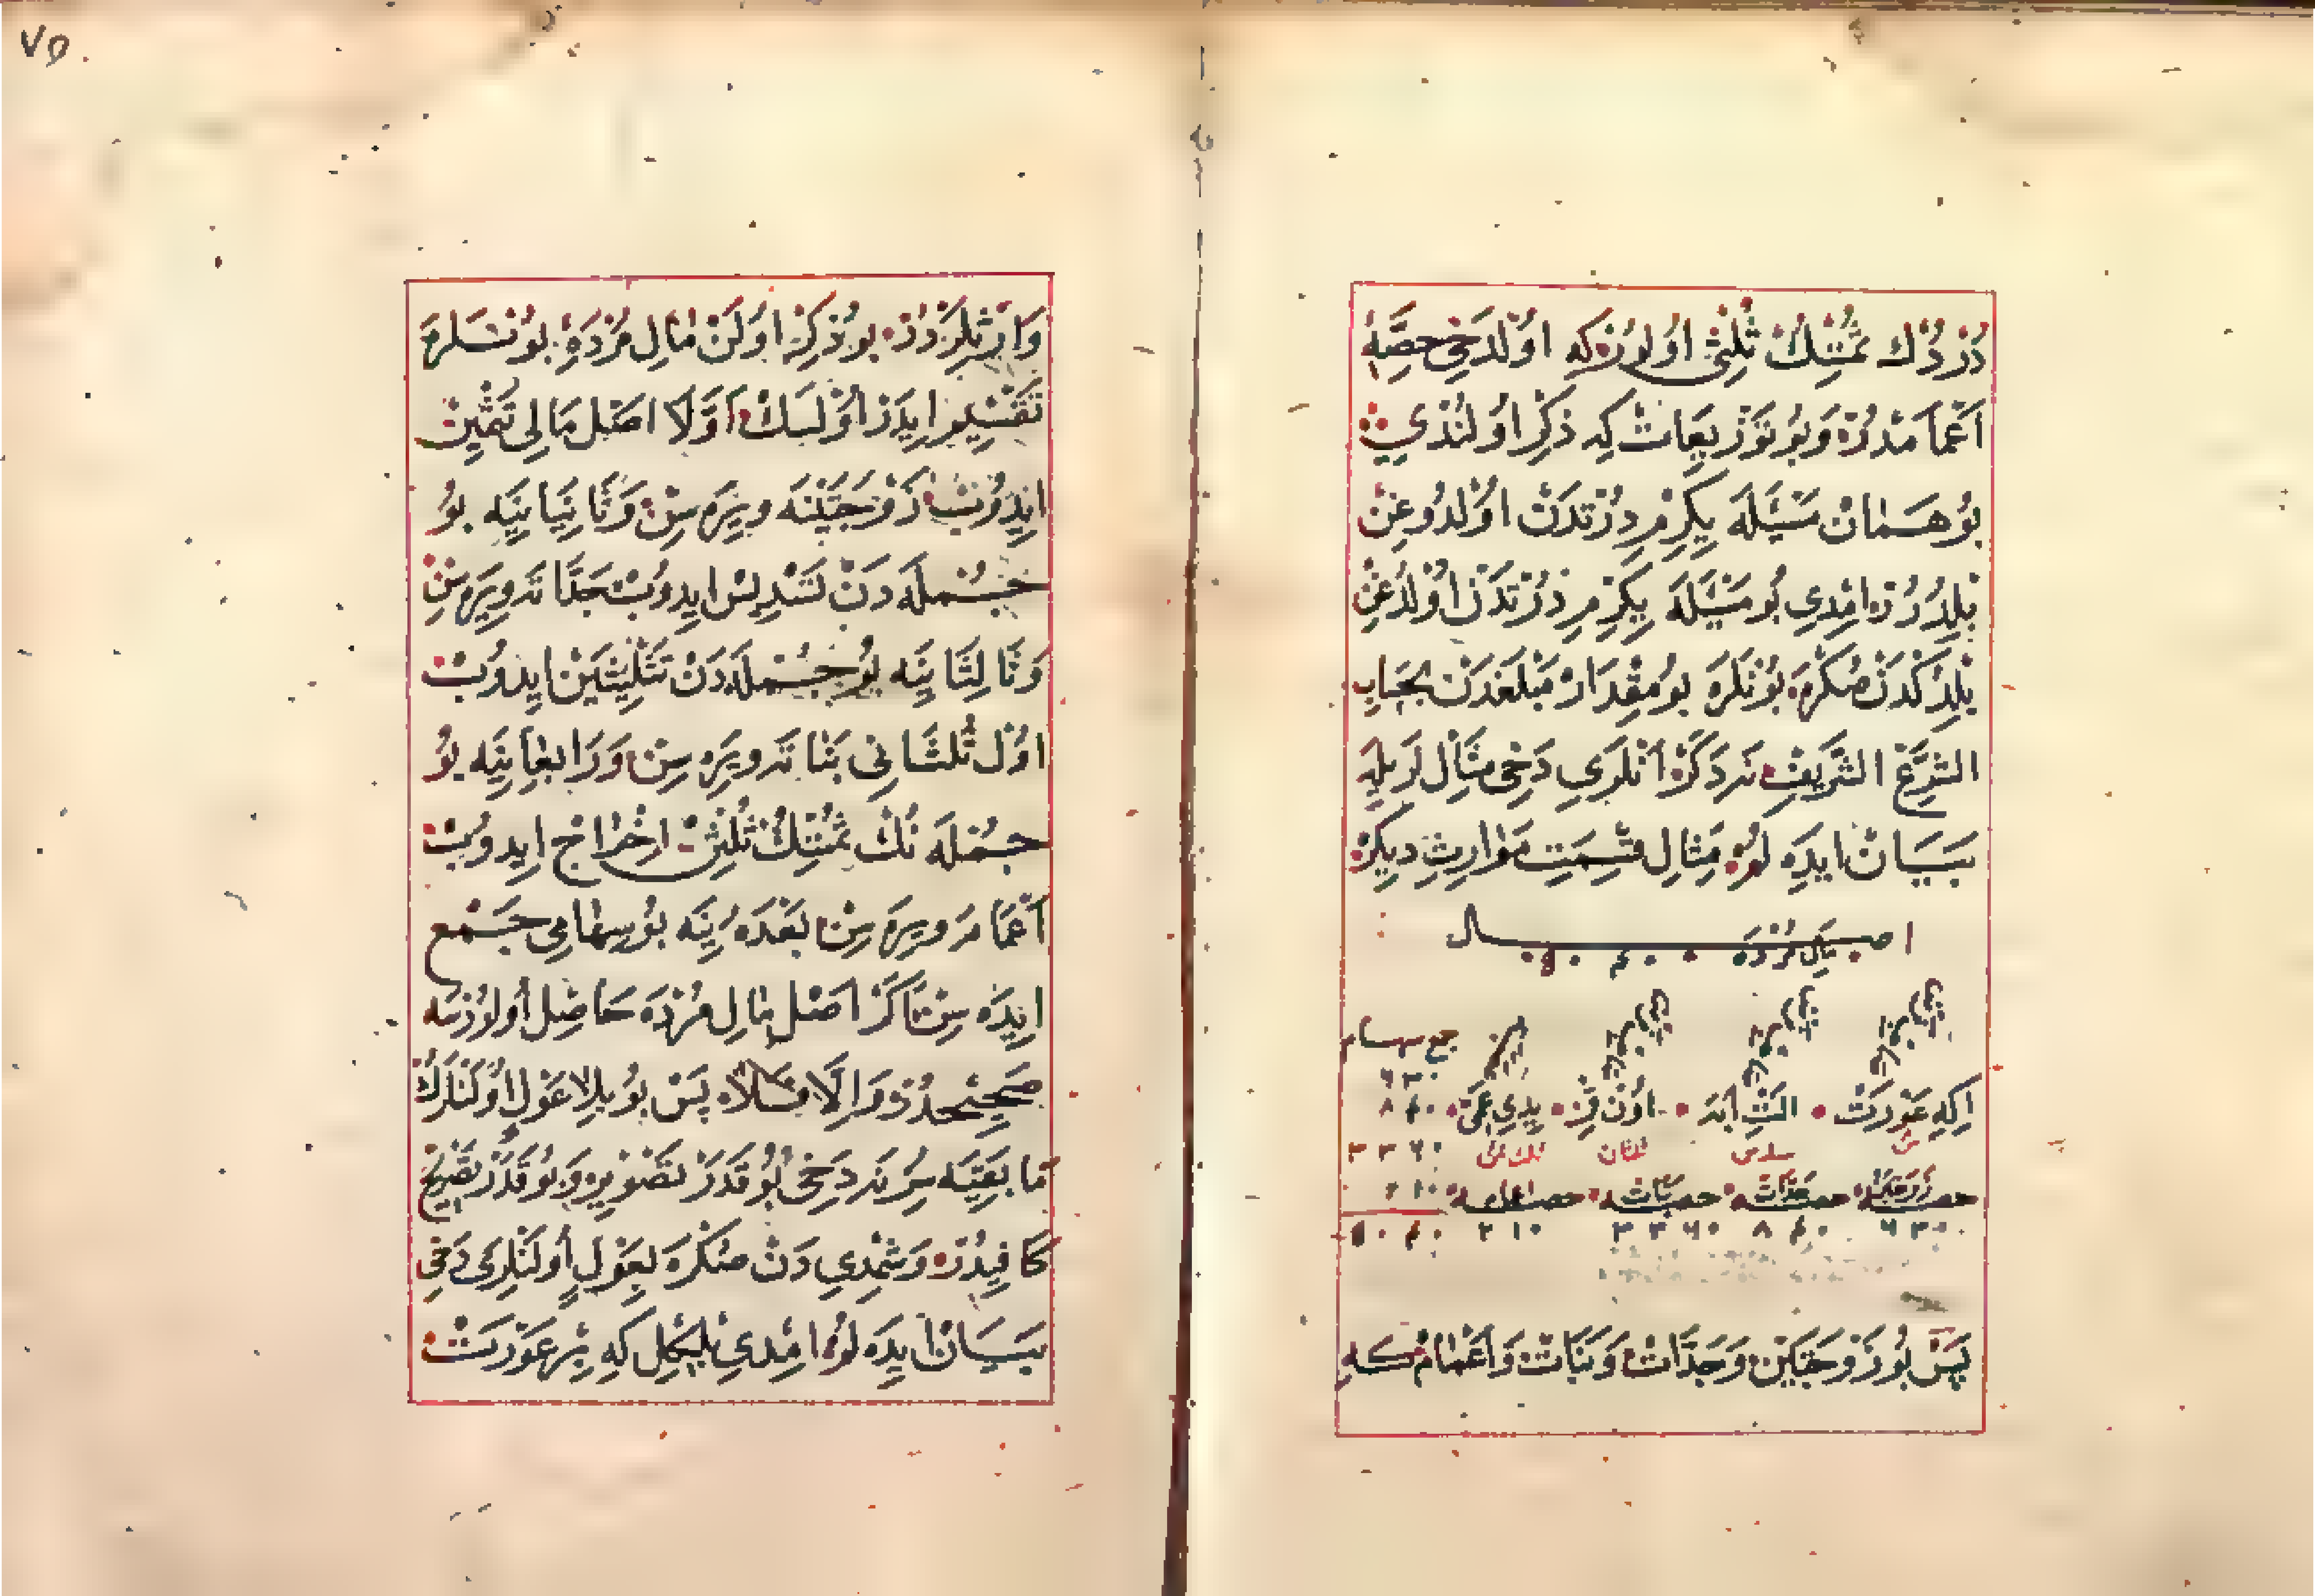 دُرْدُنْكْ ثُمْنِنِكْ ثُلُثِى اُولُورْ كِه اَوَّلْدَخِى حِصَّهِٔ
اَعْمَامْدُرْ وَبُو تَوْزِيعَاتْ كِه ذِكْرْ اُولُنْدِي
بُو هَمَانْ مَسْئَلَهْ يِكِرْمِ دُرْتْدَنْ اُولْدُوغِنْ
بِلْدُرُرْ اِمْدِي بُو مَسْئَلَهْ يِكِرْمِ دُرْتْدَنْ اُولْدُغِنْ
بِلْدِكْدَنْ صُكْرَه بُونْلَرَه بُو مِقْدَارْ مَبْلَغْدَنْ بِحِسَابِ
الشَّرْعِ الشَّرِيفْ نَه دَكَرْ اَنْلَرِي دَخِى مِثَالْ لَرِيلَه
بَيَانْ اِيدَه لُوُمْ مِثَالِ قِسْمَتِ مَوَارِيثِ دِيكَرْ
اصل مال مزده
جمع سهام
٦٣٠
٨٤٠
اِكِه عَوْرَتْ • اُلتِى اَبَه • اُونْ قِزْ • يِدِي عَمّ
ثمن سدس ثلثان ثلث ثمن
٣٣٦٠
حصه زوجتين حصه جدات حصه بنات حصه اعمام
٢١٠
٦٣٠ ٨٤٠ ٣٣٦٠ ٢١٠ ٥٠٤٠
پَسْ بُو زَوْجَتَيْنْ وَجَدَّاتْ وَبَنَاتْ وَاَعْمَامْ كِه
٧٥
وَارِثْلَرْدُرْ بُو ذِكْرْ اُولَنْ مَالِ مُزْدَهِٔ بُونْلَرَه
تَقْسِيمْ اِيدَرْ اُولْسَكْ اَوَّلَا اَصْلِ مَالِى تَثْمِينْ
اِيدُوبْ زَوْجَتَيْنَه وِيرَه سِنْ وَثَانِيًا يِنَه بُو
جُمْلَه دَنْ تَسْدِيسْ اِيدُوبْ جَدَّاتَه وِيرَه سِنْ
وَثَالِثًا يِنَه بُو جُمْلَه دَنْ تَثْلِيثَيْنْ اِيدُوبْ
اُولْ ثُلْثَانِى بَنَاتَه وِيرَه سِنْ وَرَابِعًا يِنَه بُو
جُمْلَه نَكْ ثُمْنِنِكْ ثُلُثِنْ اِخْرَاجْ اِيدُوبْ
اَعْمَامَه وِيرَه سِنْ بَعْدَهُ يِنَه بُو سِهَامِى جَمْع
اِيدَه سِنْ تَا كَرْ اَصْلِ مَالِ مُزْدَه حَاصِلْ اُولُورْسَه
صَحِيحْدُرْ وَاِلَّا فَلَا پَسْ بُو بِلَا عَوْلْ اُولَنْلَرُكْ
مَا بَقِيَّه سِنَه دَخِى بُو قَدَرْ تَصْوِيرْ وَبُو قَدَرْ تَصْحِيحْ
كَافِيدُرْ وَشِمْدِي دَنْ صُكْرَه بِعَوْلٍ اُولَنْلَرِى دَخِى
بَيَانْ اِيدَه لُوُمْ اِمْدِي بِلْكِلْ كِه بِرْ عَوْرَتْ